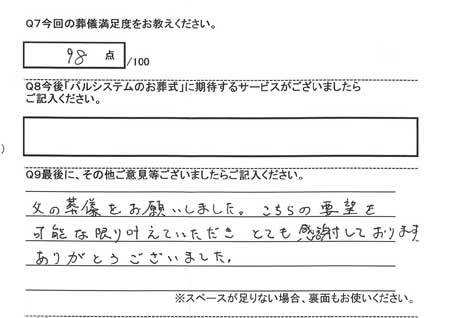 Q7今回の葬儀満足度をお教えください。
98 点 /100
Q8今後「パルシステムのお葬式」に期待するサービスがございましたら
ご記入ください。
)
Q9最後に、その他ご意見等ございましたらご記入ください。
父の葬儀をお願いしました。こちらの要望を
可能な限り叶えていただき とても感謝しております
ありがとうございました。
※スペースが足りない場合、裏面もお使いください。